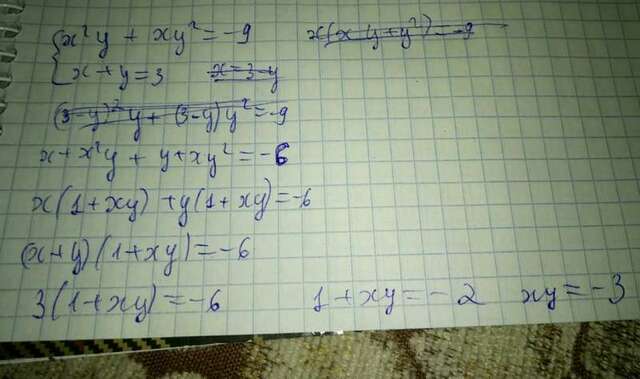 x²y + xy² = -9 x(xy+y²) = -9
x + y = 3 x=3-y
(3-y)²y + (3-y)y² = -9
x+x²y + y+xy² = -6
x(1+xy) + y(1+xy) = -6
(x+y)(1+xy) = -6
3(1+xy) = -6 1+xy = -2 xy = -3